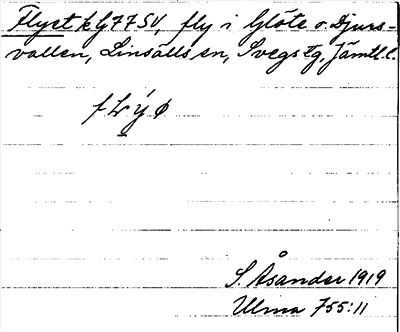 Flyet k G77SV, fly i Glöte o. Djurs-
vallen, Linsälls sn, Svegs tg, Jämtl. l.
S. Åsander 1919
Ulma 755:11